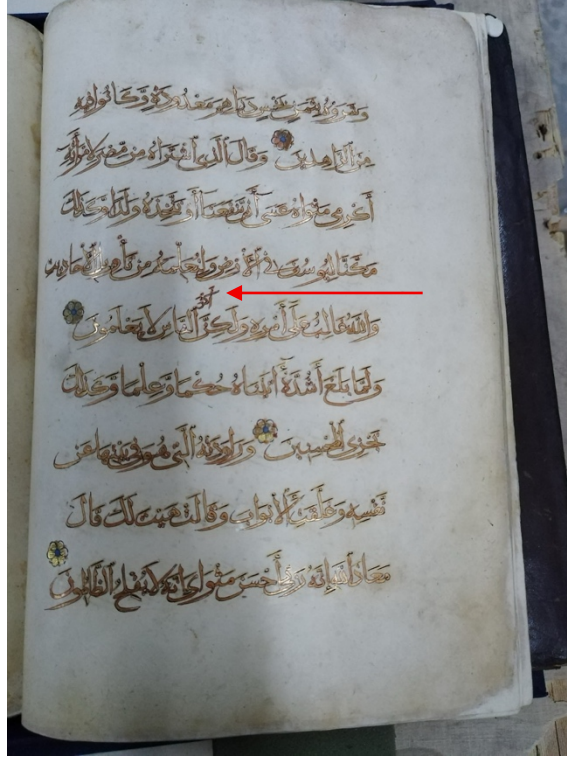 وشروه بثمن بخس دراهم معدودة وكانوا فيه
من الزاهدين وقال الذي اشتراه من مصر لامرأته
أكرمي مثواه عسى أن ينفعنا أو نتخذه ولدا وكذلك
مكنا ليوسف في الأرض ولنعلمه من تأويل الأحاديث
أكثر
والله غالب على أمره ولكن الناس لا يعلمون
ولما بلغ أشده آتيناه حكما وعلما وكذلك
نجزي المحسنين وراودته التي هو في بيتها عن
نفسه وغلقت الأبواب وقالت هيت لك قال
معاذ الله إنه ربي أحسن مثواي إنه لا يفلح الظالمون